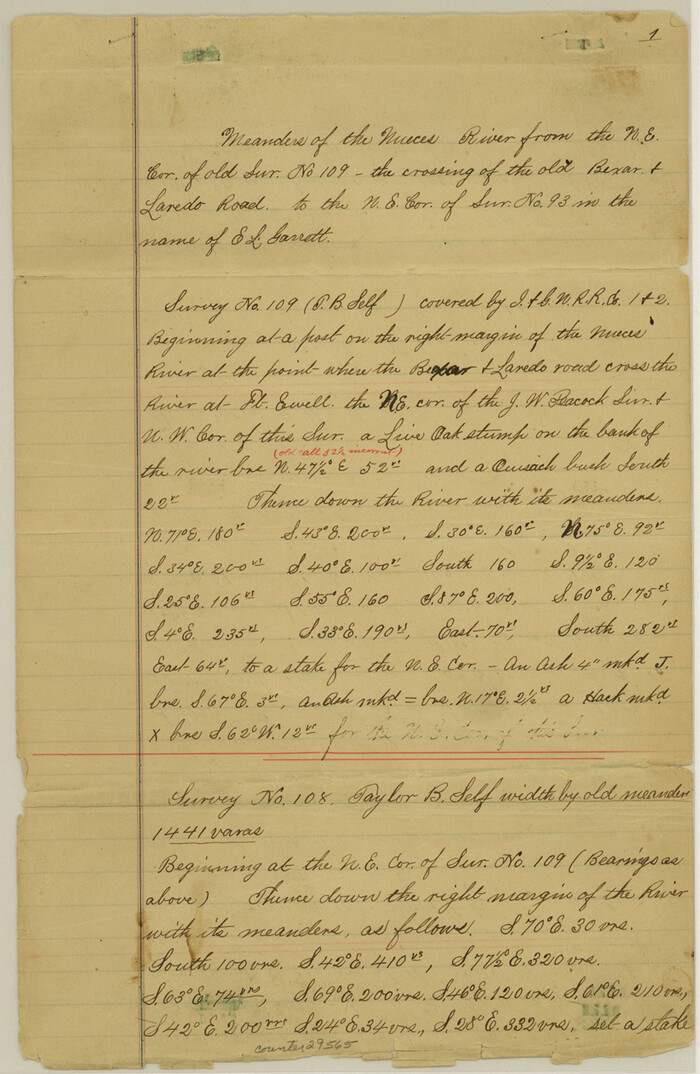 1
Meanders of the Nueces River from the N.E.
Cor. of old Sur. No 109 - the crossing of the old Bexar &
Laredo Road. to the N.E. Cor. of Sur. No. 93 in the
name of E.L. Garrett.
Survey No. 109 (T.B. Self ) covered by I.&G.N.R.R.Co. 1 & 2.
Beginning at a post on the right margin of the Nueces
River at the point where the Bexar & Laredo road cross the
River at Ft. Ewell. the NE. cor. of the J. W. Peacock Sur. &
N. W. Cor. of this Sur. a Live Oak stump on the bank of
(old call 52½ incorrect)
the river brs N. 47½° E 52 vs and a Guisach bush South
22 vs Thence down the River with its meanders.
N. 71° E. 180 vs S. 43° E. 200 vs, S. 30° E. 160 vs, N 75° E. 92 vs
S. 34° E. 200 vs S. 40° E. 100 vs South 160 S. 9½° E. 120
S. 25° E. 106 vs S. 55° E. 160 S. 87° E. 200, S. 60° E. 175 vs,
S. 4° E. 235 vs, S. 33° E. 190 vs, East 70 vs, South 282 vs
East 64 vs, to a stake for the N. E. Cor. - An Ash 4" mkd J.
brs. S. 67° E. 3 vs, an Ash mkd = brs. N. 17° E. 2½ vs a Hack mkd
X brs S. 62° W. 12 vs for the N. E. Cor. of this Sur.
Survey No. 108. Taylor B. Self width by old meanders
1441 varas
Beginning at the N.E. Cor. of Sur. No. 109 (Bearings as
above) Thence down the right margin of the River
with its meanders, as follows. S. 70° E. 30 vrs.
South 100 vrs. S. 42° E. 410 vs, S. 77½° E. 320 vrs.
S. 63° E. 74 vrs, S. 69° E. 200 vrs. S. 46° E. 120 vrs, S. 61° E. 210 vrs,
S 42° E. 200 vrs S. 24° E. 34 vrs., S. 28° E. 332 vrs. set a stake
counter 29565